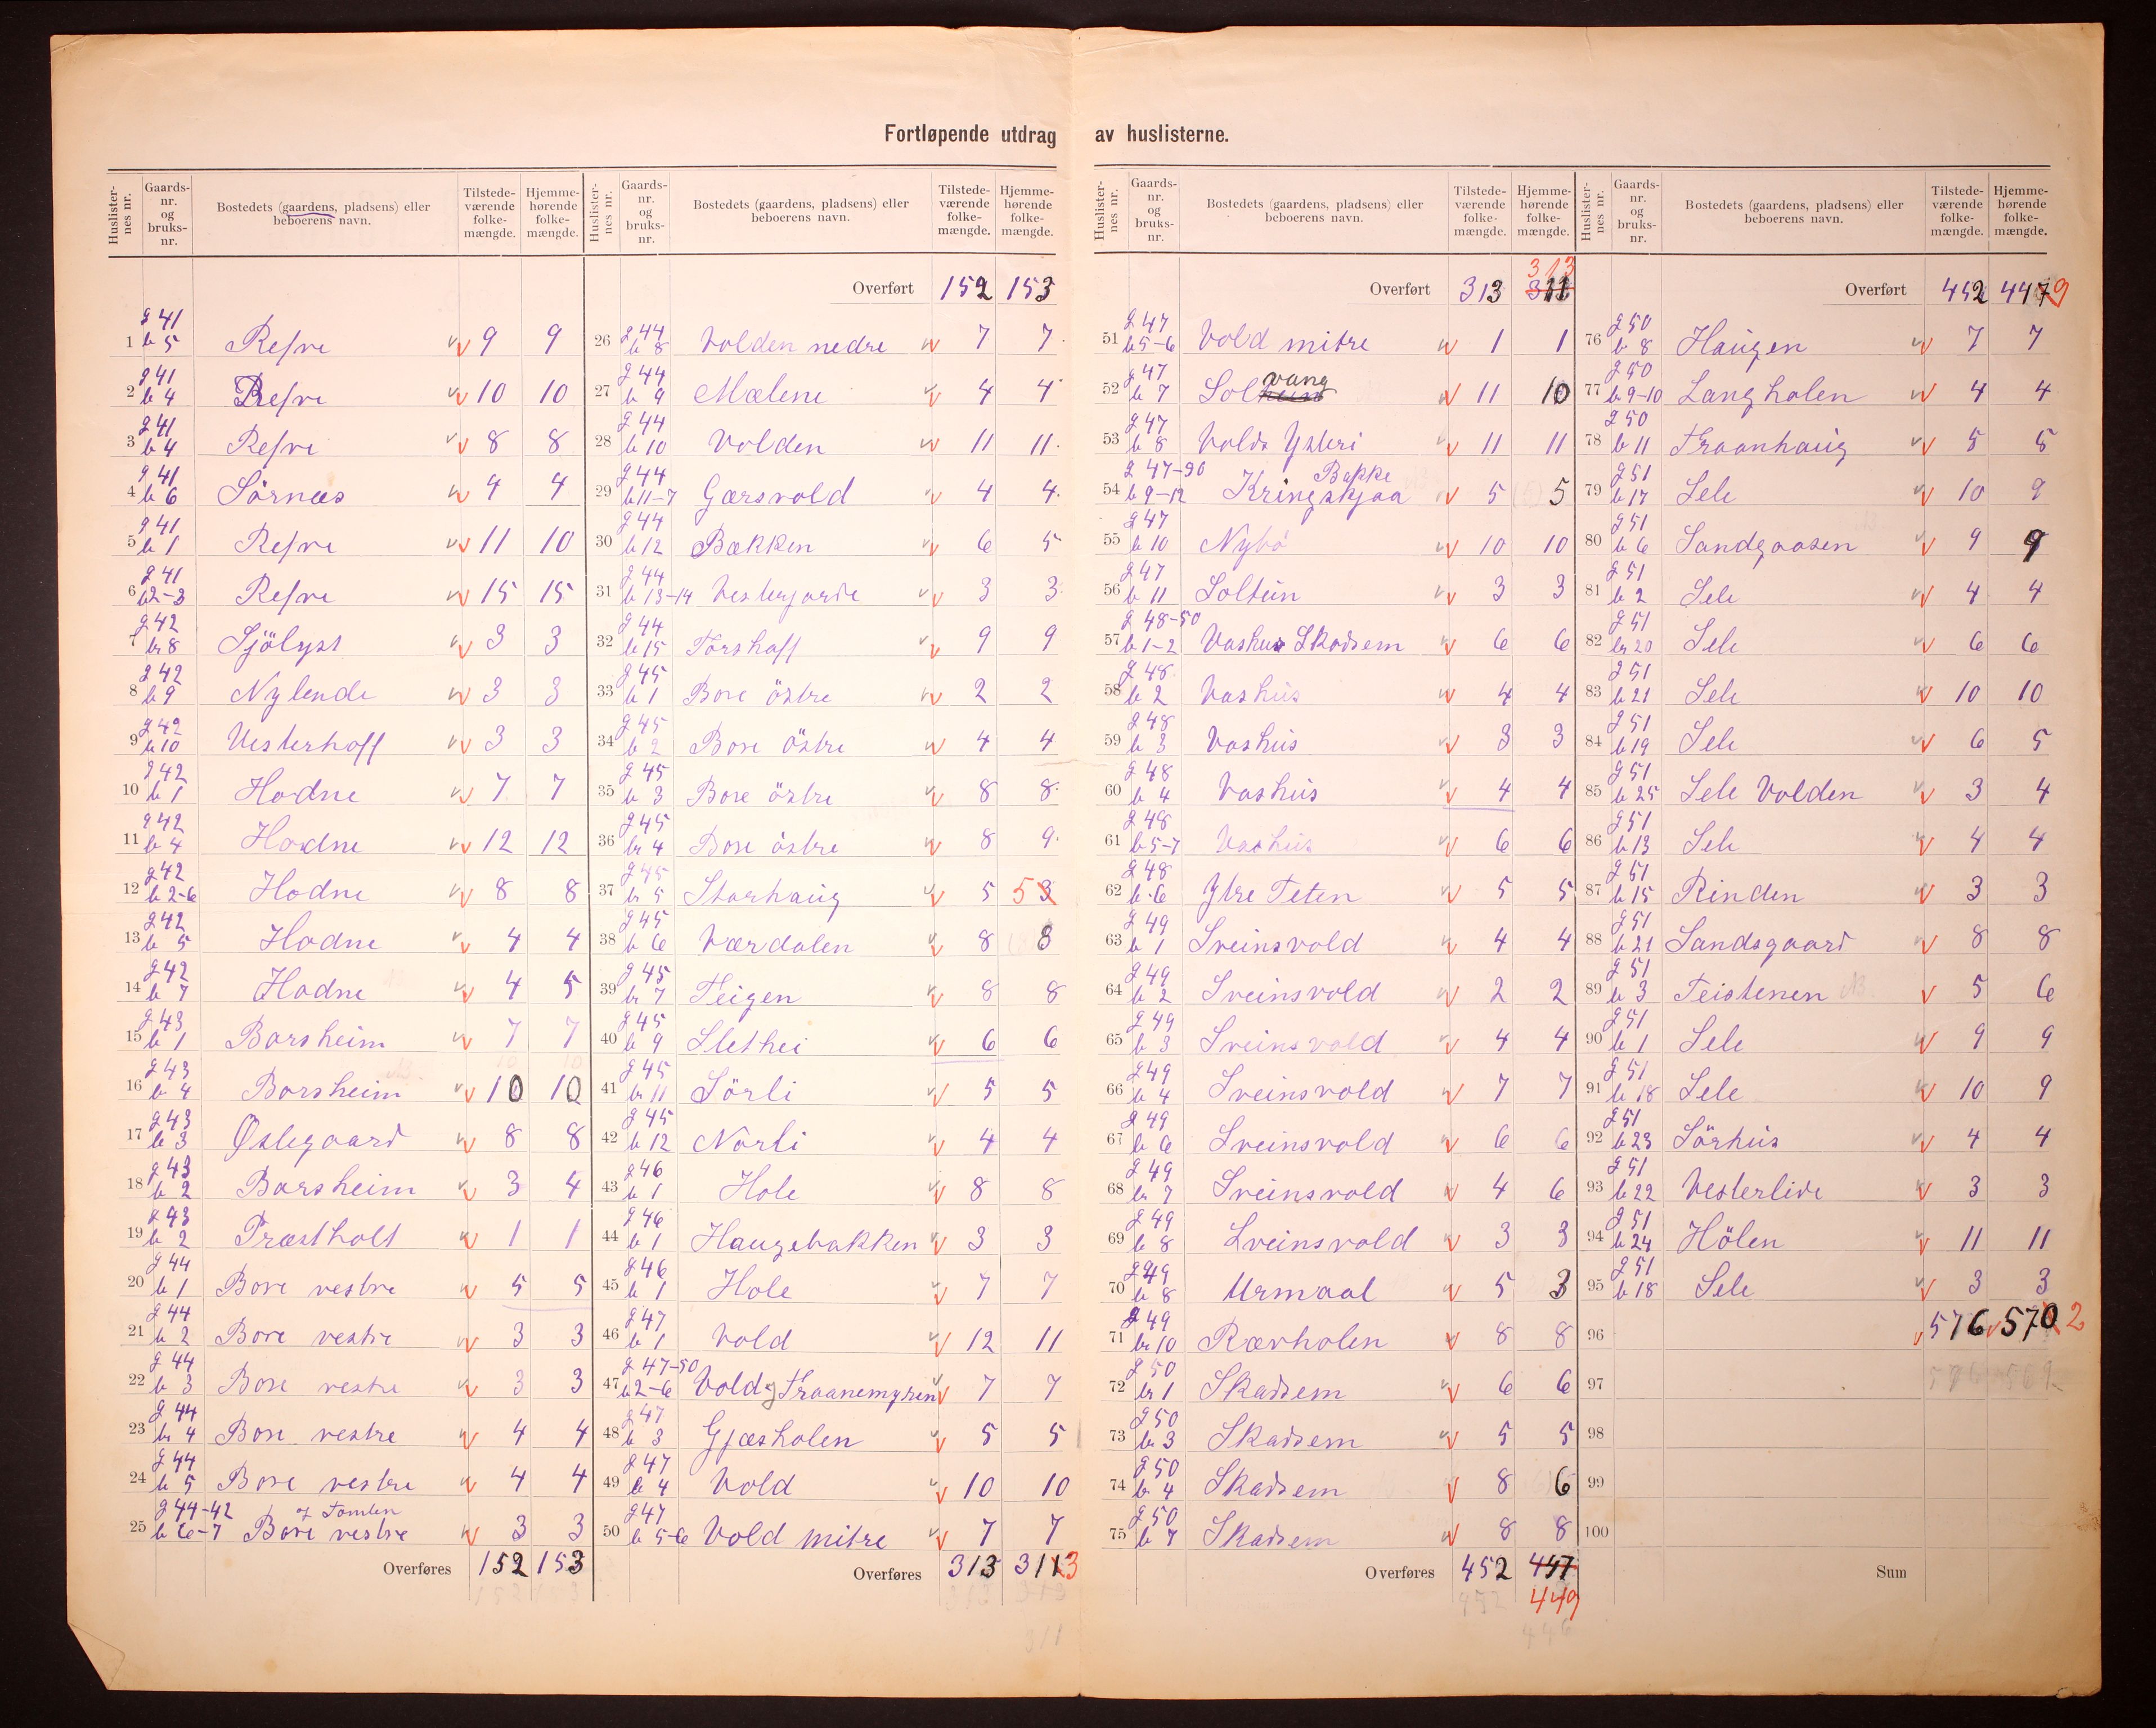 Fortløpende utdrag av huslisterne.
Huslisternes nr. Gaards-nr. og bruks-nr. Bostedets (gaardens, pladsens) eller beboerens navn. Tilstedeværende folkemængde. Hjemmehørende folkemængde.
1 g 41 b 5 Refve 9 9
2 g 41 b 4 Refve 10 10
3 g 41 b 4 Refve 8 8
4 g 41 b 6 Sörnæs 4 4
5 g 41 b 1 Refve 11 10
6 g 41 b 2-3 Refve 15 15
7 g 42 br 8 Sjölyst 3 3
8 g 42 b 9 Nylende 3 3
9 g 42 b 10 Vesterhoff 3 3
10 g 42 b 1 Hodne 7 7
11 g 42 b 4 Hodne 12 12
12 g 42 b 2-6 Hodne 8 8
13 g 42 b 5 Hodne 4 4
14 g 42 b 7 Hodne 4 5
15 g 43 b 1 Borsheim 7 7
16 g 43 b 4 Borsheim 10 10
17 g 43 b 3 Østegaard 8 8
18 g 43 b 2 Borsheim 3 4
19 g 43 b 2 Præstholt 1 1
20 g 44 b 1 Bore vestre 5 5
21 g 44 b 2 Bore vestre 3 3
22 g 44 b 3 Bore vestre 3 3
23 g 44 br 4 Bore vestre 4 4
24 g 44 b 5 Bore vestre 4 4
25 g 44-42 b 6-7 Bore vestre 3 3
Overføres 152 153
Huslisternes nr. Gaards-nr. og bruks-nr. Bostedets (gaardens, pladsens) eller beboerens navn. Tilstedeværende folkemængde. Hjemmehørende folkemængde.
Overført 152 153
26 g 44 b 8 Volden nedre 7 7
27 g 44 b 9 Mælene 4 4
28 g 44 b 10 Volden 11 11
29 g 44 b 11-7 Gærsvold 4 4
30 g 44 b 12 Bakken 6 5
31 g 44 b 13-14 Vestergarde 3 3
32 g 44 b 15 Torshaff 9 9
33 g 45 b 1 Bore östre 2 2
34 g 45 b 2 Bore östre 4 4
35 g 45 b 3 Bore östre 8 8
36 g 45 br 4 Bore östre 8 9
37 g 45 br 5 Storhaug 5 5 3
38 g 45 b 6 Værdalen 8 8
39 g 45 br 7 Teigen 8 8
40 g 45 b 9 Slethei 6 6
41 g 45 br 11 Sörli 5 5
42 g 45 b 12 Norli 4 4
43 g 46 b 1 Hole 8 8
44 g 46 b 1 Haugebakken 3 3
45 g 46 b 1 Hole 7 7
46 g 47 b 1 Vold 12 11
47 g 47-50 b 2-6 Vold og Traanemyren 7 7
48 g 47 b 3 Gjæsholen 5 5
49 g 47 b 4 Vold 10 10
50 g 47 b 5-6 Vold mitre 7 7
Overføres 313 311 3
Huslisternes nr. Gaards-nr. og bruks-nr. Bostedets (gaardens, pladsens) eller beboerens navn. Tilstedeværende folkemængde. Hjemmehørende folkemængde.
313
Overført 313 311
51 g 47 b 5-6 Vold mitre 1 1
52 g 47 b 7 Solvang 11 10
53 g 47 b 8 Volds Ysteri 11 11
54 g 47-90 b 9-12 Kringskjaa Bakke 5 5
55 g 47 b 10 Nybö 10 10
56 g 47 b 11 Soltun 3 3
57 g 48-50 b 1-2 Vashus Skadsem 6 6
58 g 48 b 2 Vashus 4 4
59 g 48 b 3 Vashus 3 3
60 g 48 b 4 Vashus 4 4
61 g 48 b 5-7 Vashus 6 6
62 g 48 b 6 Ytre Teten 5 5
63 g 49 b 1 Sveinsvold 4 4
64 g 49 b 2 Sveinsvold 2 2
65 g 49 b 3 Sveinsvold 4 4
66 g 49 b 4 Sveinsvold 7 7
67 g 49 b 6 Sveinsvold 6 6
68 g 49 br 7 Sveinsvold 4 6
69 g 49 b 8 Sveinsvold 3 3
70 g 49 b 8 Urmaal 5 3
71 g 49 br 10 Rævholen 8 8
72 g 50 br 1 Skadsem 6 6
73 g 50 br 3 Skadsem 5 5
74 g 50 b 4 Skadsem 8 6
75 g 50 b 7 Skadsem 8 8
Overføres 452 447
449
Huslisternes nr. Gaards-nr. og bruks-nr. Bostedets (gaardens, pladsens) eller beboerens navn. Tilstedeværende folkemængde. Hjemmehørende folkemængde.
Overført 452 447 9
76 g 50 b 8 Haugen 7 7
77 g 50 b 9-10 Langholen 4 4
78 g 50 b 11 Traanhaug 5 5
79 g 51 b 17 Sele 10 9
80 g 51 b 6 Sandgaasen 9 9
81 g 51 b 2 Sele 4 4
82 g 51 br 20 Sele 6 6
83 g 51 b 21 Sele 10 10
84 g 51 b 19 Sele 6 5
85 g 51 b 25 Sele Volden 3 4
86 g 51 b 13 Sele 4 4
87 g 51 b 15 Rinden 3 3
88 g 51 b 21 Sandsgaard 8 8
89 g 51 b 3 Teistenen 5 6
90 g 51 b 1 Sele 9 9
91 g 51 b 18 Sele 10 9
92 g 51 b 23 Sörhus 4 4
93 g 51 b 22 Vesterlide 3 3
94 g 51 b 24 Hölen 11 11
95 g 51 b 18 Sele 3 3
96 576 570 2
97
98
99
100
Sum